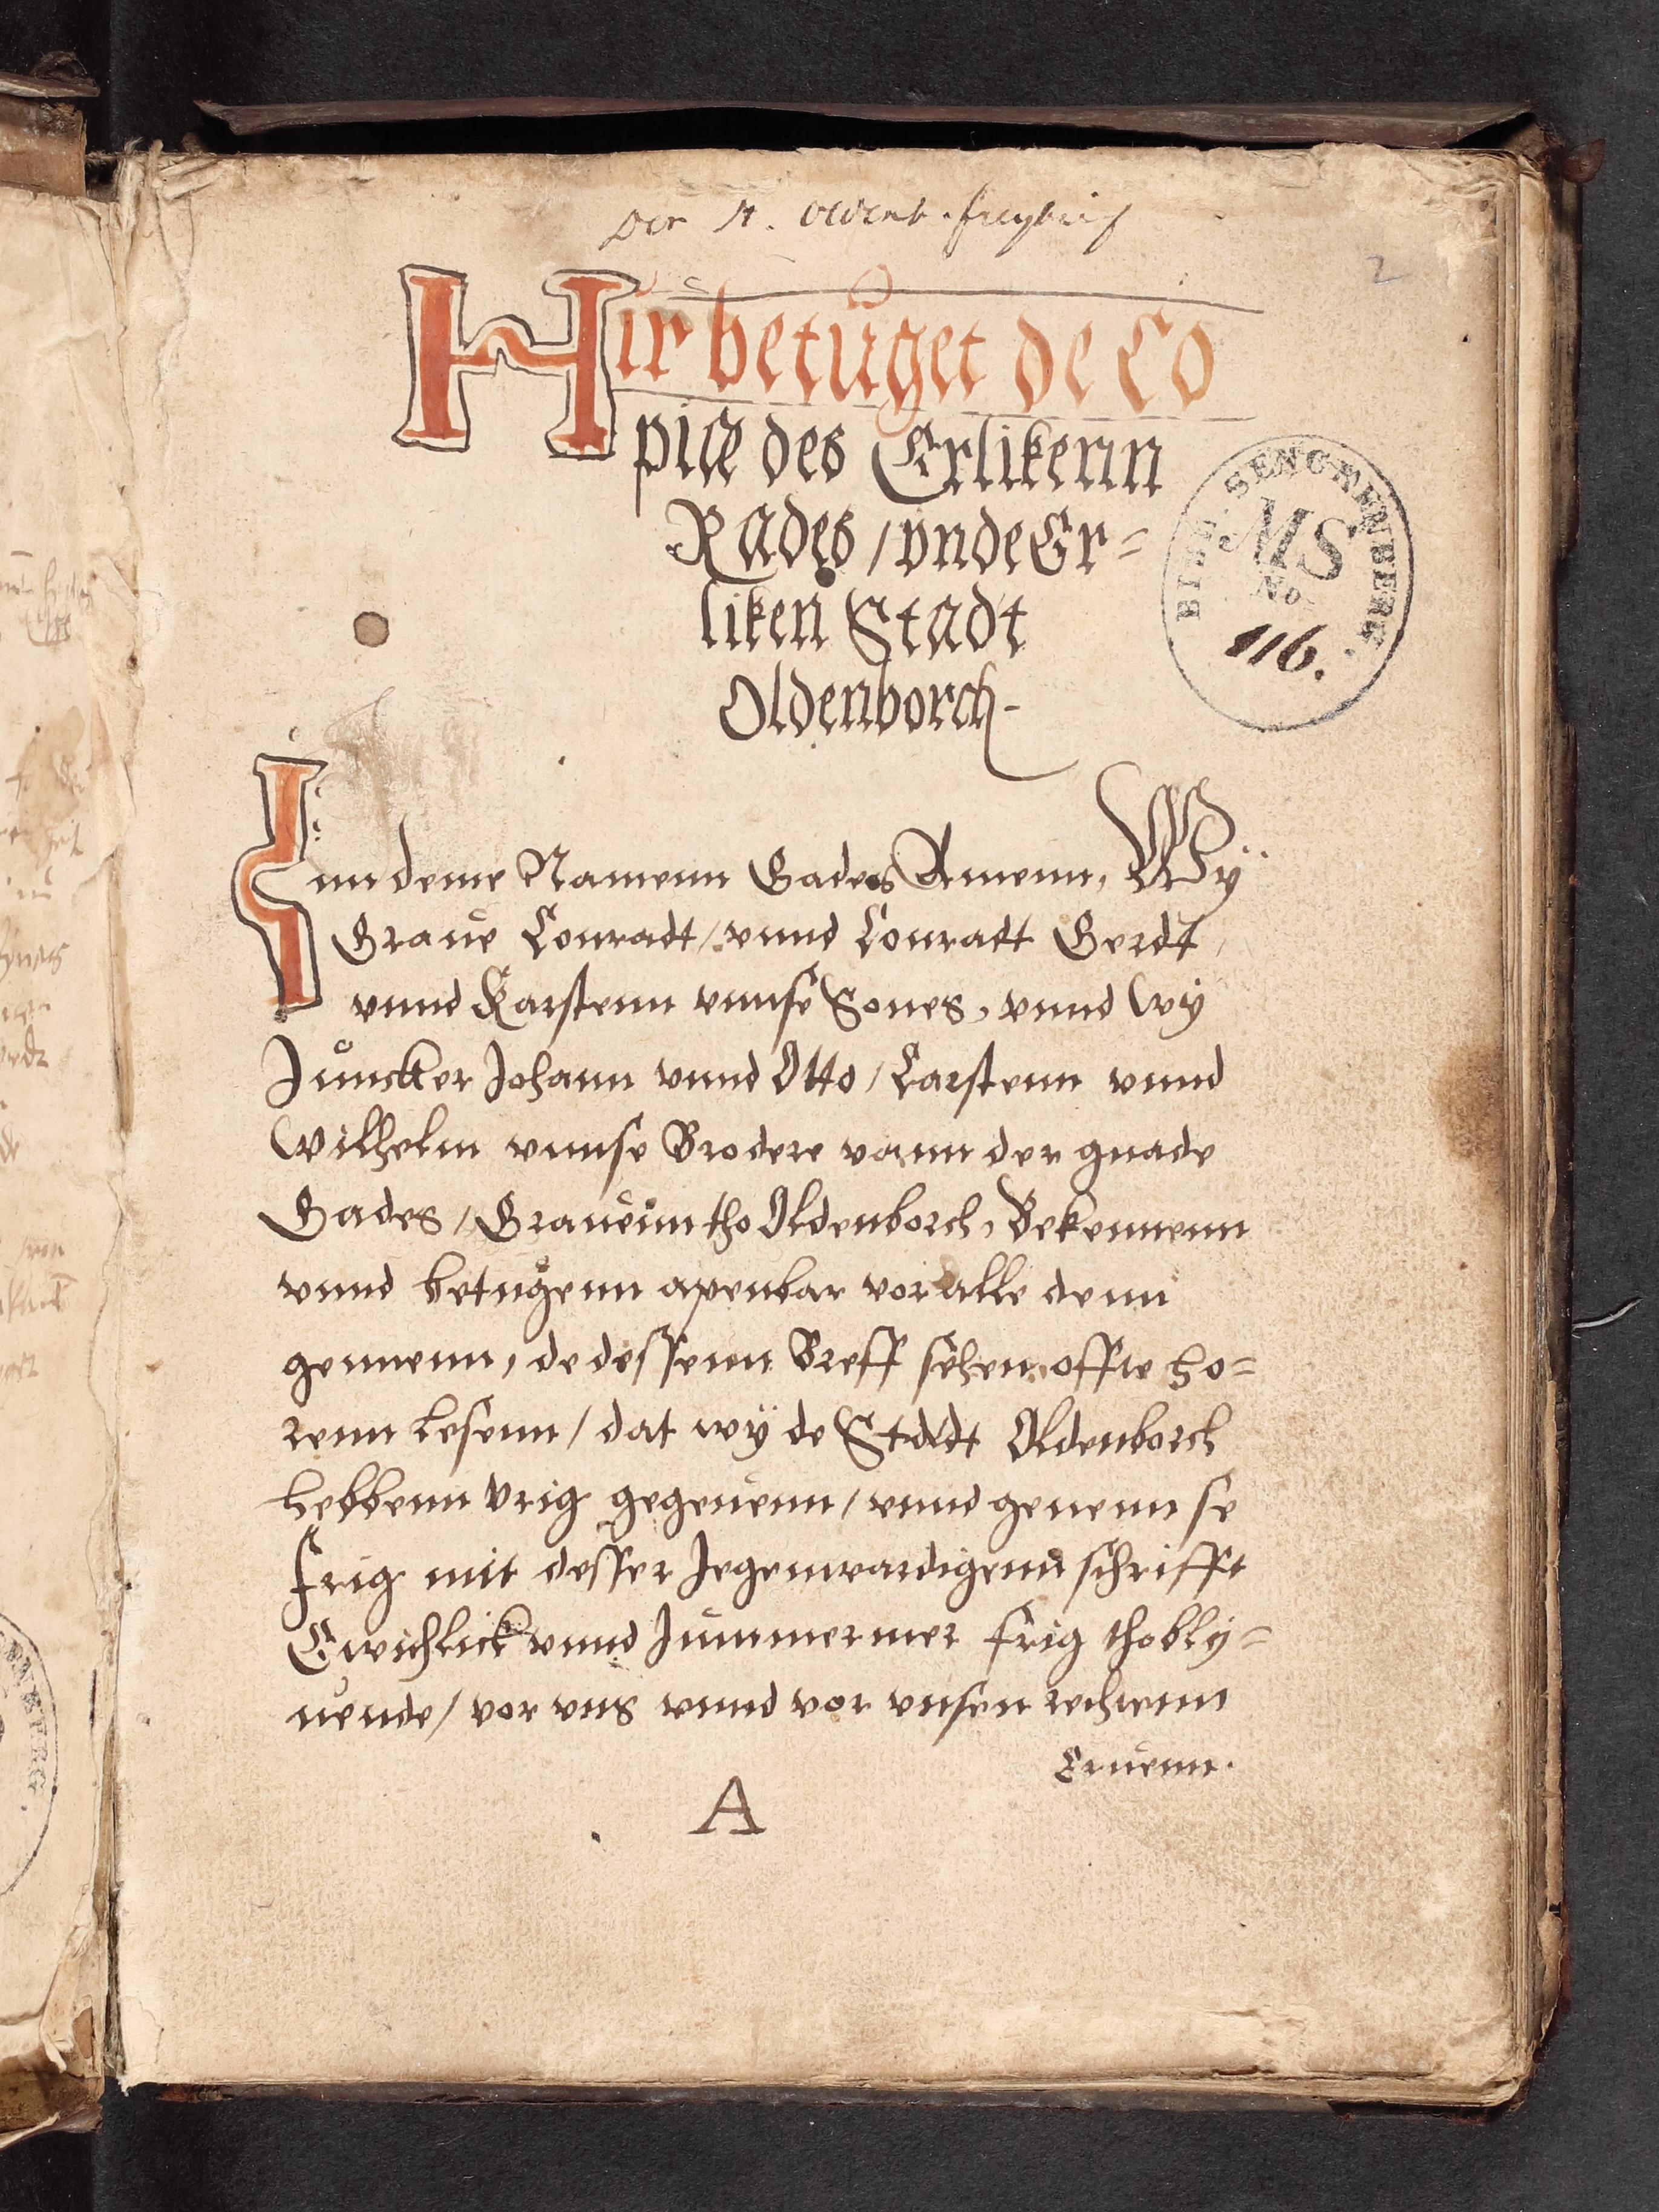 Der St. Oldenb. freybrief
2
Hir betuget de Co
pie des Erlikenn
Rades / vnde Er=
liken Stadt
Oldenborch-
BIBL. SENCKENBERG.
MS
No
116.
Inn deme Namenn Gades Amenn, Wÿ
Graue Conradt / vnnd Conradt Gerdt,
vnnd Karstenn vnnse Sones, vnnd Wÿ
Juncker Johann vnnd Otto / Carstenn vnnd
Wilhelm vnnse Brodere vann der gnade
Gades / Grauenn tho Oldenborch, Bekennenn
vnnd betugenn apenbar vor alle denn
gennenn, de dessenn Breff sehen offte ho=
renn lesenn / dat wÿ de Stadt Oldenborch
hebbenn vrig gegeuenn / vnnd geuenn se
frig mit desser Jegenwardigenn schrifft
Ewichlick vnnd Jummermer frig tho bly=
uende / vor vns vnnd vor vnsen rechtenn
Eruenn.
A